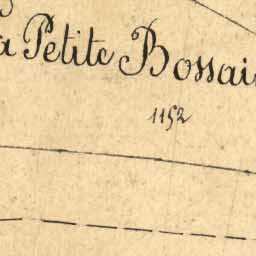 a Petite Bossai
1152